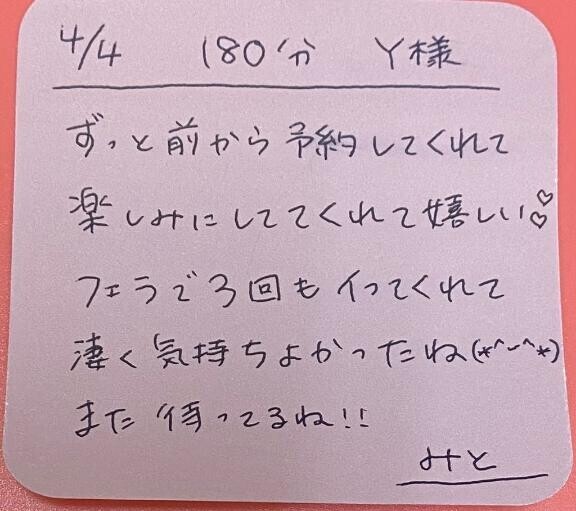 4/4 180分 Y様
ずっと前から予約してくれて
楽しみにしててくれて嬉しい♡♡
フェラで3回もイってくれて
凄く気持ちよかったね(*^-^*)
また待ってるね!!
みと